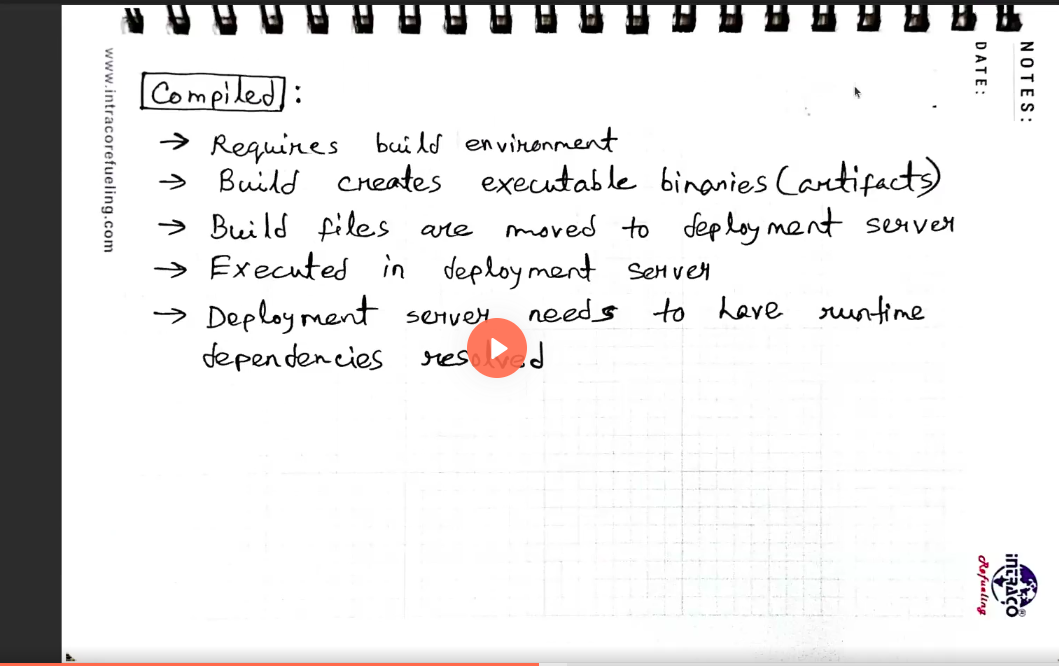 NOTES:
DATE:
www.intracorefueling.com
Compiled :
→ Requires build environment
→ Build creates executable binaries (artifacts)
→ Build files are moved to deployment server
→ Executed in deployment server
→ Deployment server needs to have runtime
dependencies resolved
INTRACO
Refueling